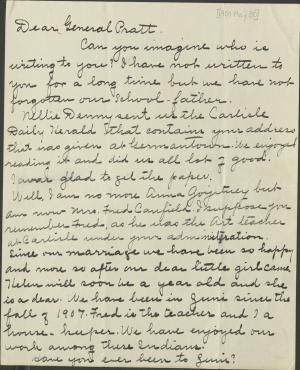 [1909 May 25]
Dear General Pratt.
Can you imagine who is
writing to you? I have not written to
you for a long time but we have not
forgotten our School-father.
Nellie Denny sent us the Carlisle
Daily Herald that contains your address
that was given at Germantown. We enjoyed
reading it and did us all lot of good.
I was glad to get the paper.
Well, I am no more Anna Goyitney but
am now Mrs. Fred Canfield. I suppose you
remember Fred, as he was the Art teacher
at Carlisle under your administration.
Since our marriage we have been so happy
and more so after our dear little girl came.
Helen will soon be a year old and she
is a dear. We have been in Zuni since the
fall of 1907. Fred is the teacher and I a
house-keeper. We have enjoyed our
work among these Indians.
Have you ever been to Zuni?